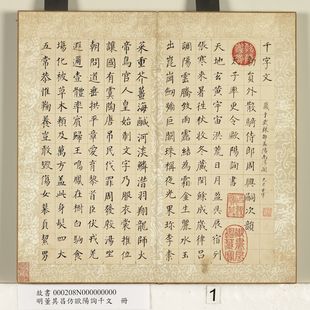 千字文
員外散騎侍郎周興嗣次韻
子率更令歐陽詢書
天地玄黃宇宙洪荒日月盈昃辰宿列
張寒來暑往秋收冬藏閏餘成歲律呂
調陽雲騰致雨露結為霜金生麗水玉
出崑崗劍號巨闕珠稱夜光果珍李柰
菜重芥薑海鹹河淡鱗潛羽翔龍師火
帝鳥官人皇始制文字乃服衣裳推位
讓國有虞陶唐弔民伐罪周發殷湯坐
朝問道垂拱平章愛育黎首臣伏戎羌
遐邇壹體率賓歸王鳴鳳在樹白駒食
場化被草木賴及萬方蓋此身髮四大
五常恭惟鞠養豈敢毀傷女慕貞絜男
故書 000208N000000000
明董其昌仿歐陽詢千文 冊
1